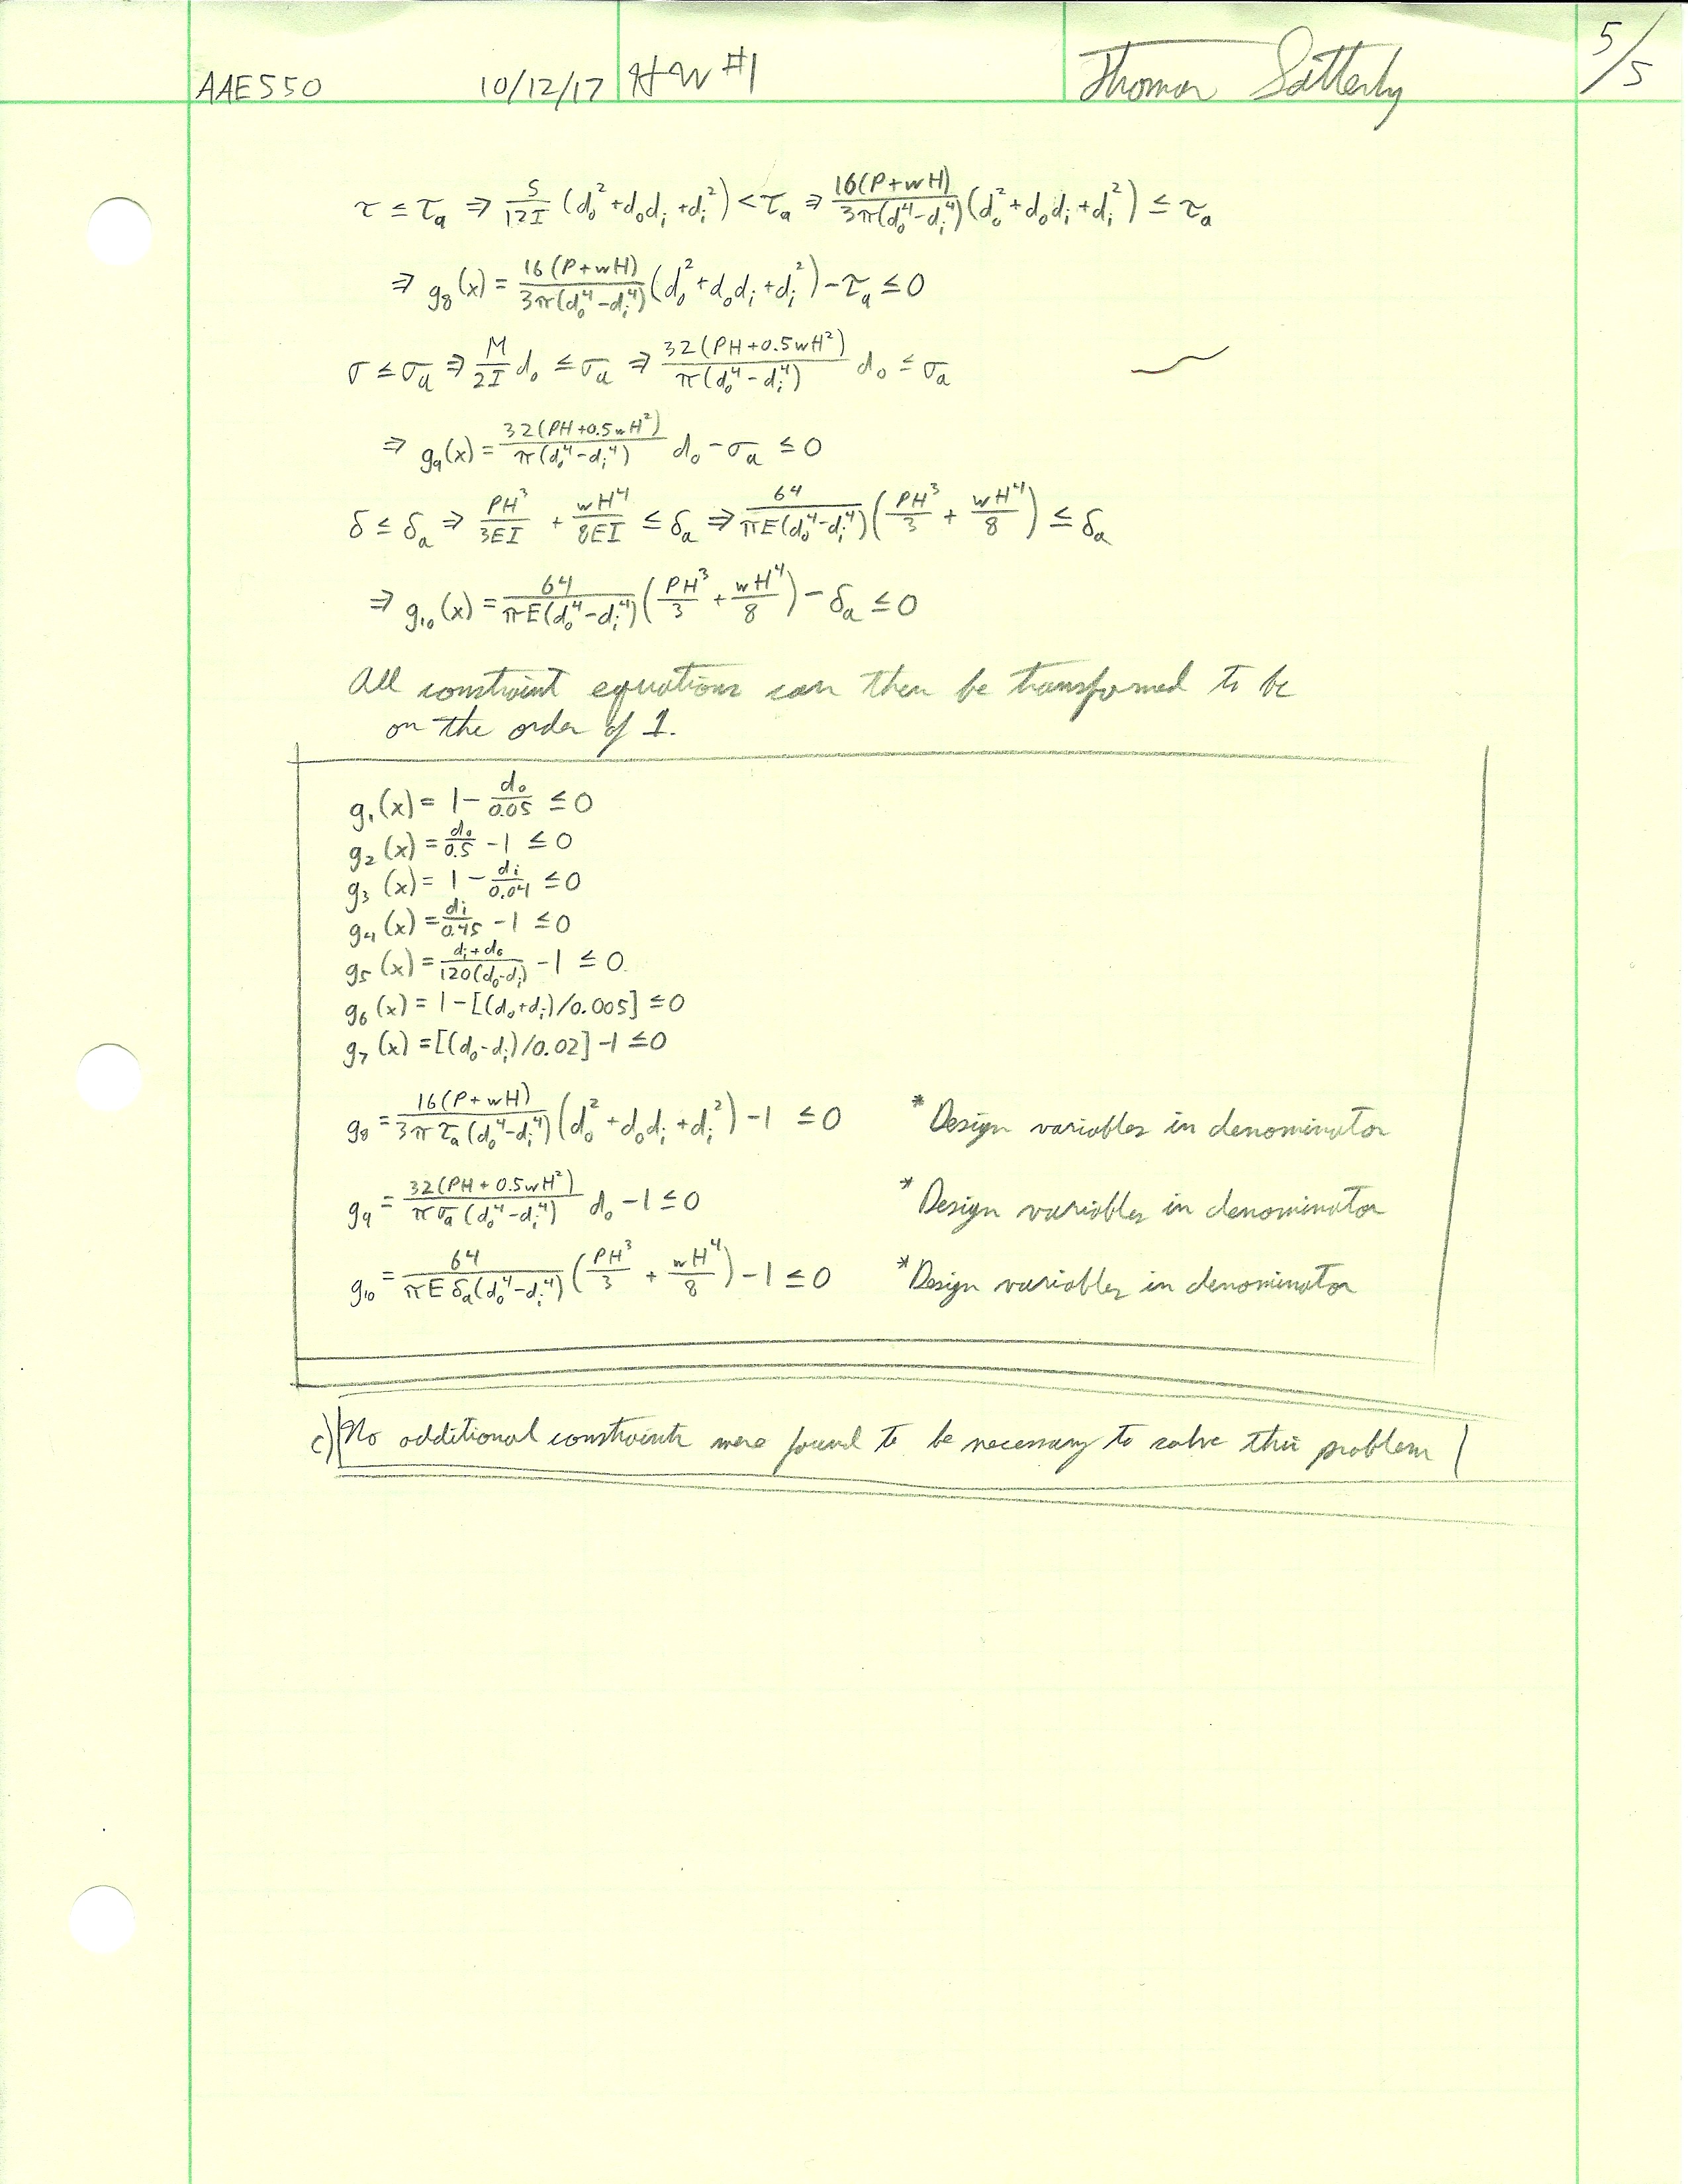 AAE550 10/12/17 HW #1 Thomas Satterly 5/5
τ ≤ τₐ ⇒ S/12I (d₀² + d₀dᵢ + dᵢ²) < τₐ ⇒ 16(P+wH)/3π(d₀⁴−dᵢ⁴) (d₀² + d₀dᵢ + dᵢ²) ≤ τₐ
⇒ g₈(x) = 16(P+wH)/3π(d₀⁴−dᵢ⁴) (d₀² + d₀dᵢ + dᵢ²) − τₐ ≤ 0
σ ≤ σₐ ⇒ M/2I d₀ ≤ σₐ ⇒ 32(PH+0.5wH²)/π(d₀⁴−dᵢ⁴) d₀ ≤ σₐ
⇒ g₉(x) = 32(PH+0.5wH²)/π(d₀⁴−dᵢ⁴) d₀ − σₐ ≤ 0
δ ≤ δₐ ⇒ PH³/3EI + wH⁴/8EI ≤ δₐ ⇒ 64/πE(d₀⁴−dᵢ⁴) (PH³/3 + wH⁴/8) ≤ δₐ
⇒ g₁₀(x) = 64/πE(d₀⁴−dᵢ⁴) (PH³/3 + wH⁴/8) − δₐ ≤ 0
All constraint equations can then be transformed to be
on the order of 1.
g₁(x) = 1 − d₀/0.05 ≤ 0
g₂(x) = d₀/0.5 − 1 ≤ 0
g₃(x) = 1 − dᵢ/0.04 ≤ 0
g₄(x) = dᵢ/0.45 − 1 ≤ 0
g₅(x) = dᵢ+d₀/120(d₀−dᵢ) − 1 ≤ 0
g₆(x) = 1 − [(d₀+dᵢ)/0.005] ≤ 0
g₇(x) = [(d₀−dᵢ)/0.02] − 1 ≤ 0
g₈ = 16(P+wH)/3πτₐ(d₀⁴−dᵢ⁴) (d₀² + d₀dᵢ + dᵢ²) − 1 ≤ 0 * Design variables in denominator
g₉ = 32(PH + 0.5wH²)/πσₐ(d₀⁴−dᵢ⁴) d₀ − 1 ≤ 0 * Design variables in denominator
g₁₀ = 64/πEδₐ(d₀⁴−dᵢ⁴) (PH³/3 + wH⁴/8) − 1 ≤ 0 * Design variables in denominator
c) No additional constraints were found to be necessary to solve this problem